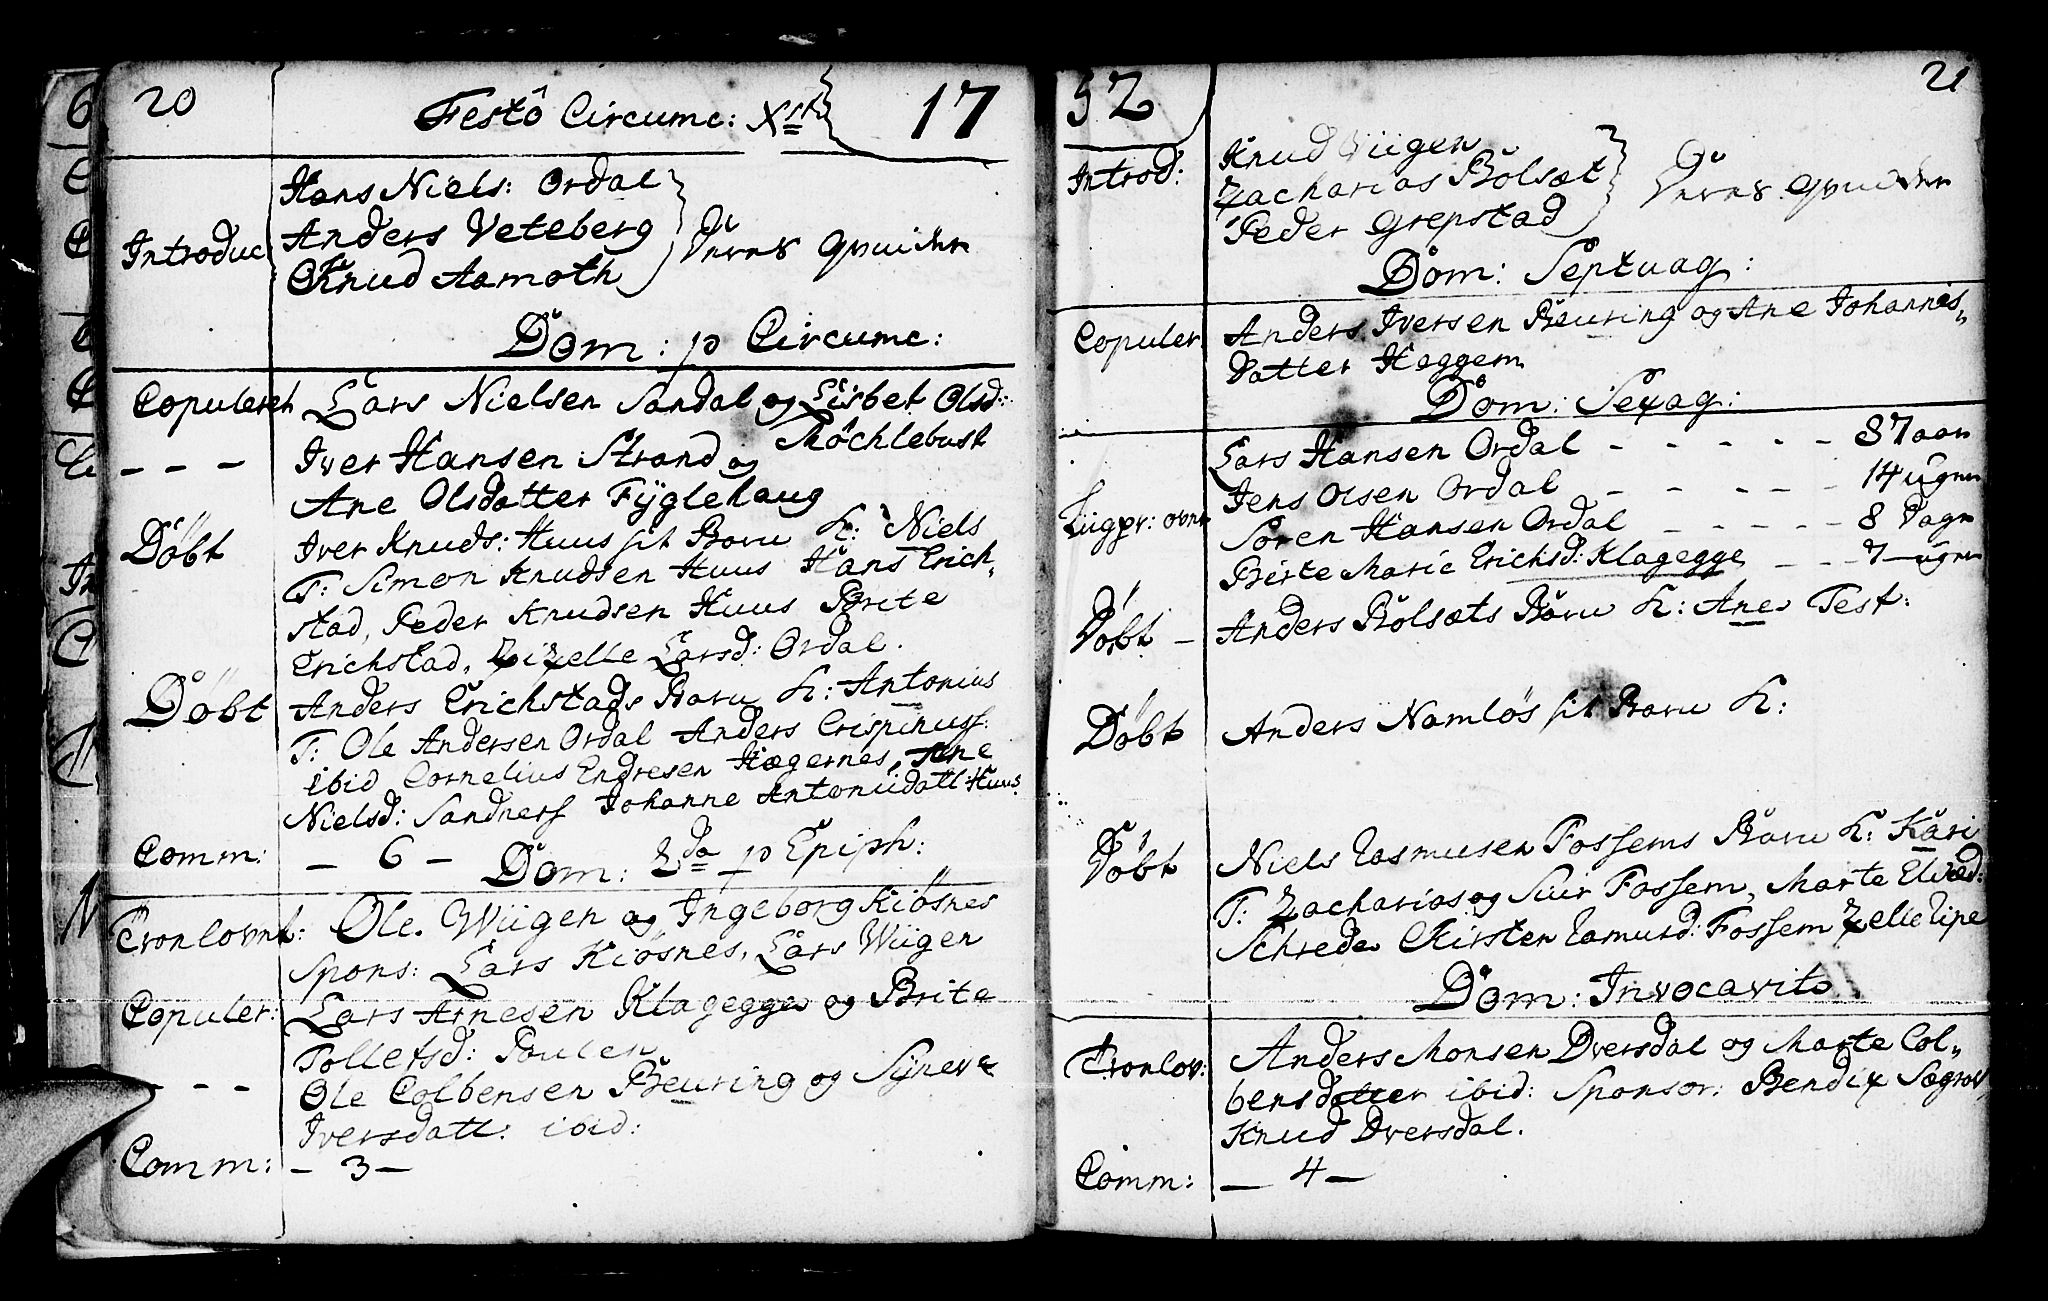 20
Festô Circumc: Xsti
17
Introduc
Hans Niels: Ordal
Anders Veteberg
Knud Aamoth
Deres Qvinder
Dom: p Circumc:
Copuleret Lars Nielsen Sandal og Lisbet Olsd:
Möchlebust
- - - Iver Hansen Strand og
Ane Olsdatter Fÿglehaug
Döbt Iver Knuds: Huus sit Barn k: Niels
T: Simon Knudsen Huus Hans Erich-
stad, Peder Knudsen Huus Brite
Erichstad, Zizelle Larsd: Ordal.
Döbt Anders Erichstads Barn k: Antonius
T: Ole Andersen Ordal Anders Crispinuss:
ibid Cornelius Endresen Hægernes, Ane
Nielsd: Sandnes Johanne Antoniidatt: Huus
Comm: - 6 -
Dom: 2da p Epiph:
Tronlovet: Ole Wiigen og Ingeborg Kiösnes
Spons: Lars Kiösnes, Lars Wiigen
Copuler: Lars Arnesen Klagegge og Brite
Tollefsd: Poulen
- - - Ole Colbensen Beuring og Sÿneve
Iversdatt: ibid:
Comm: - 3 -
52
21
Introd:
Knud Wiigen
Zacharias Bolsæt
Peder Grepstad
Deres Qvinder
Dom: Septuag:
Copuler Anders Iversen Beuring og Ane Johannes-
datter Heggem
Dom: Sexag:
Lars Hansen Ordal - - - - - 87 aar
Jens Olsen Ordal - - - - - 14 ugner
Liigpr: over
Sören Hansen Ordal - - - - - 8 Dage
Birte Marie Erichsd: Klagegge - - - 7 ugner
Döbt - Anders Bolsæts Barn k: Ane Test:
Döbt Anders Namlös sit Barn k:
Döbt Niels Rasmusen Fossems Barn k: Kari
T: Zacharias og Siur Fossem, Marte Elvæd:
Schrede Kirsten Fossem Zelie Ripe
Dom: Invocavit
Tronlov: Anders Monsen Dversdal og Marte Col-
bensdatter ibid: Sponsor: Bendix Sægrov
Knud Dversdal.
Comm: - 4 -